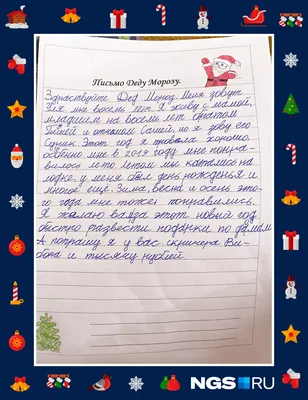 Письмо Деду Морозу.
Здраствуйте Дед Мороз. Меня зовут
мне восемь лет. Я живу с мамой,
младшим на восемь лет братом
и отчимом Сашей, но я зову его
Этот год я провела хорошо.
особенно мне в 2019 году мне понра-
вилось лето. Летом мы катались на
лодке, у меня был день рожденья и
многое ещё. Зима, весна и осень это-
го года мне тоже понравились.
Я желаю вам в этот новый год
быстро развести подарки по домам.
А попрошу я у вас скричера Ви-
бона и тысячу рублей.
NGS.RU